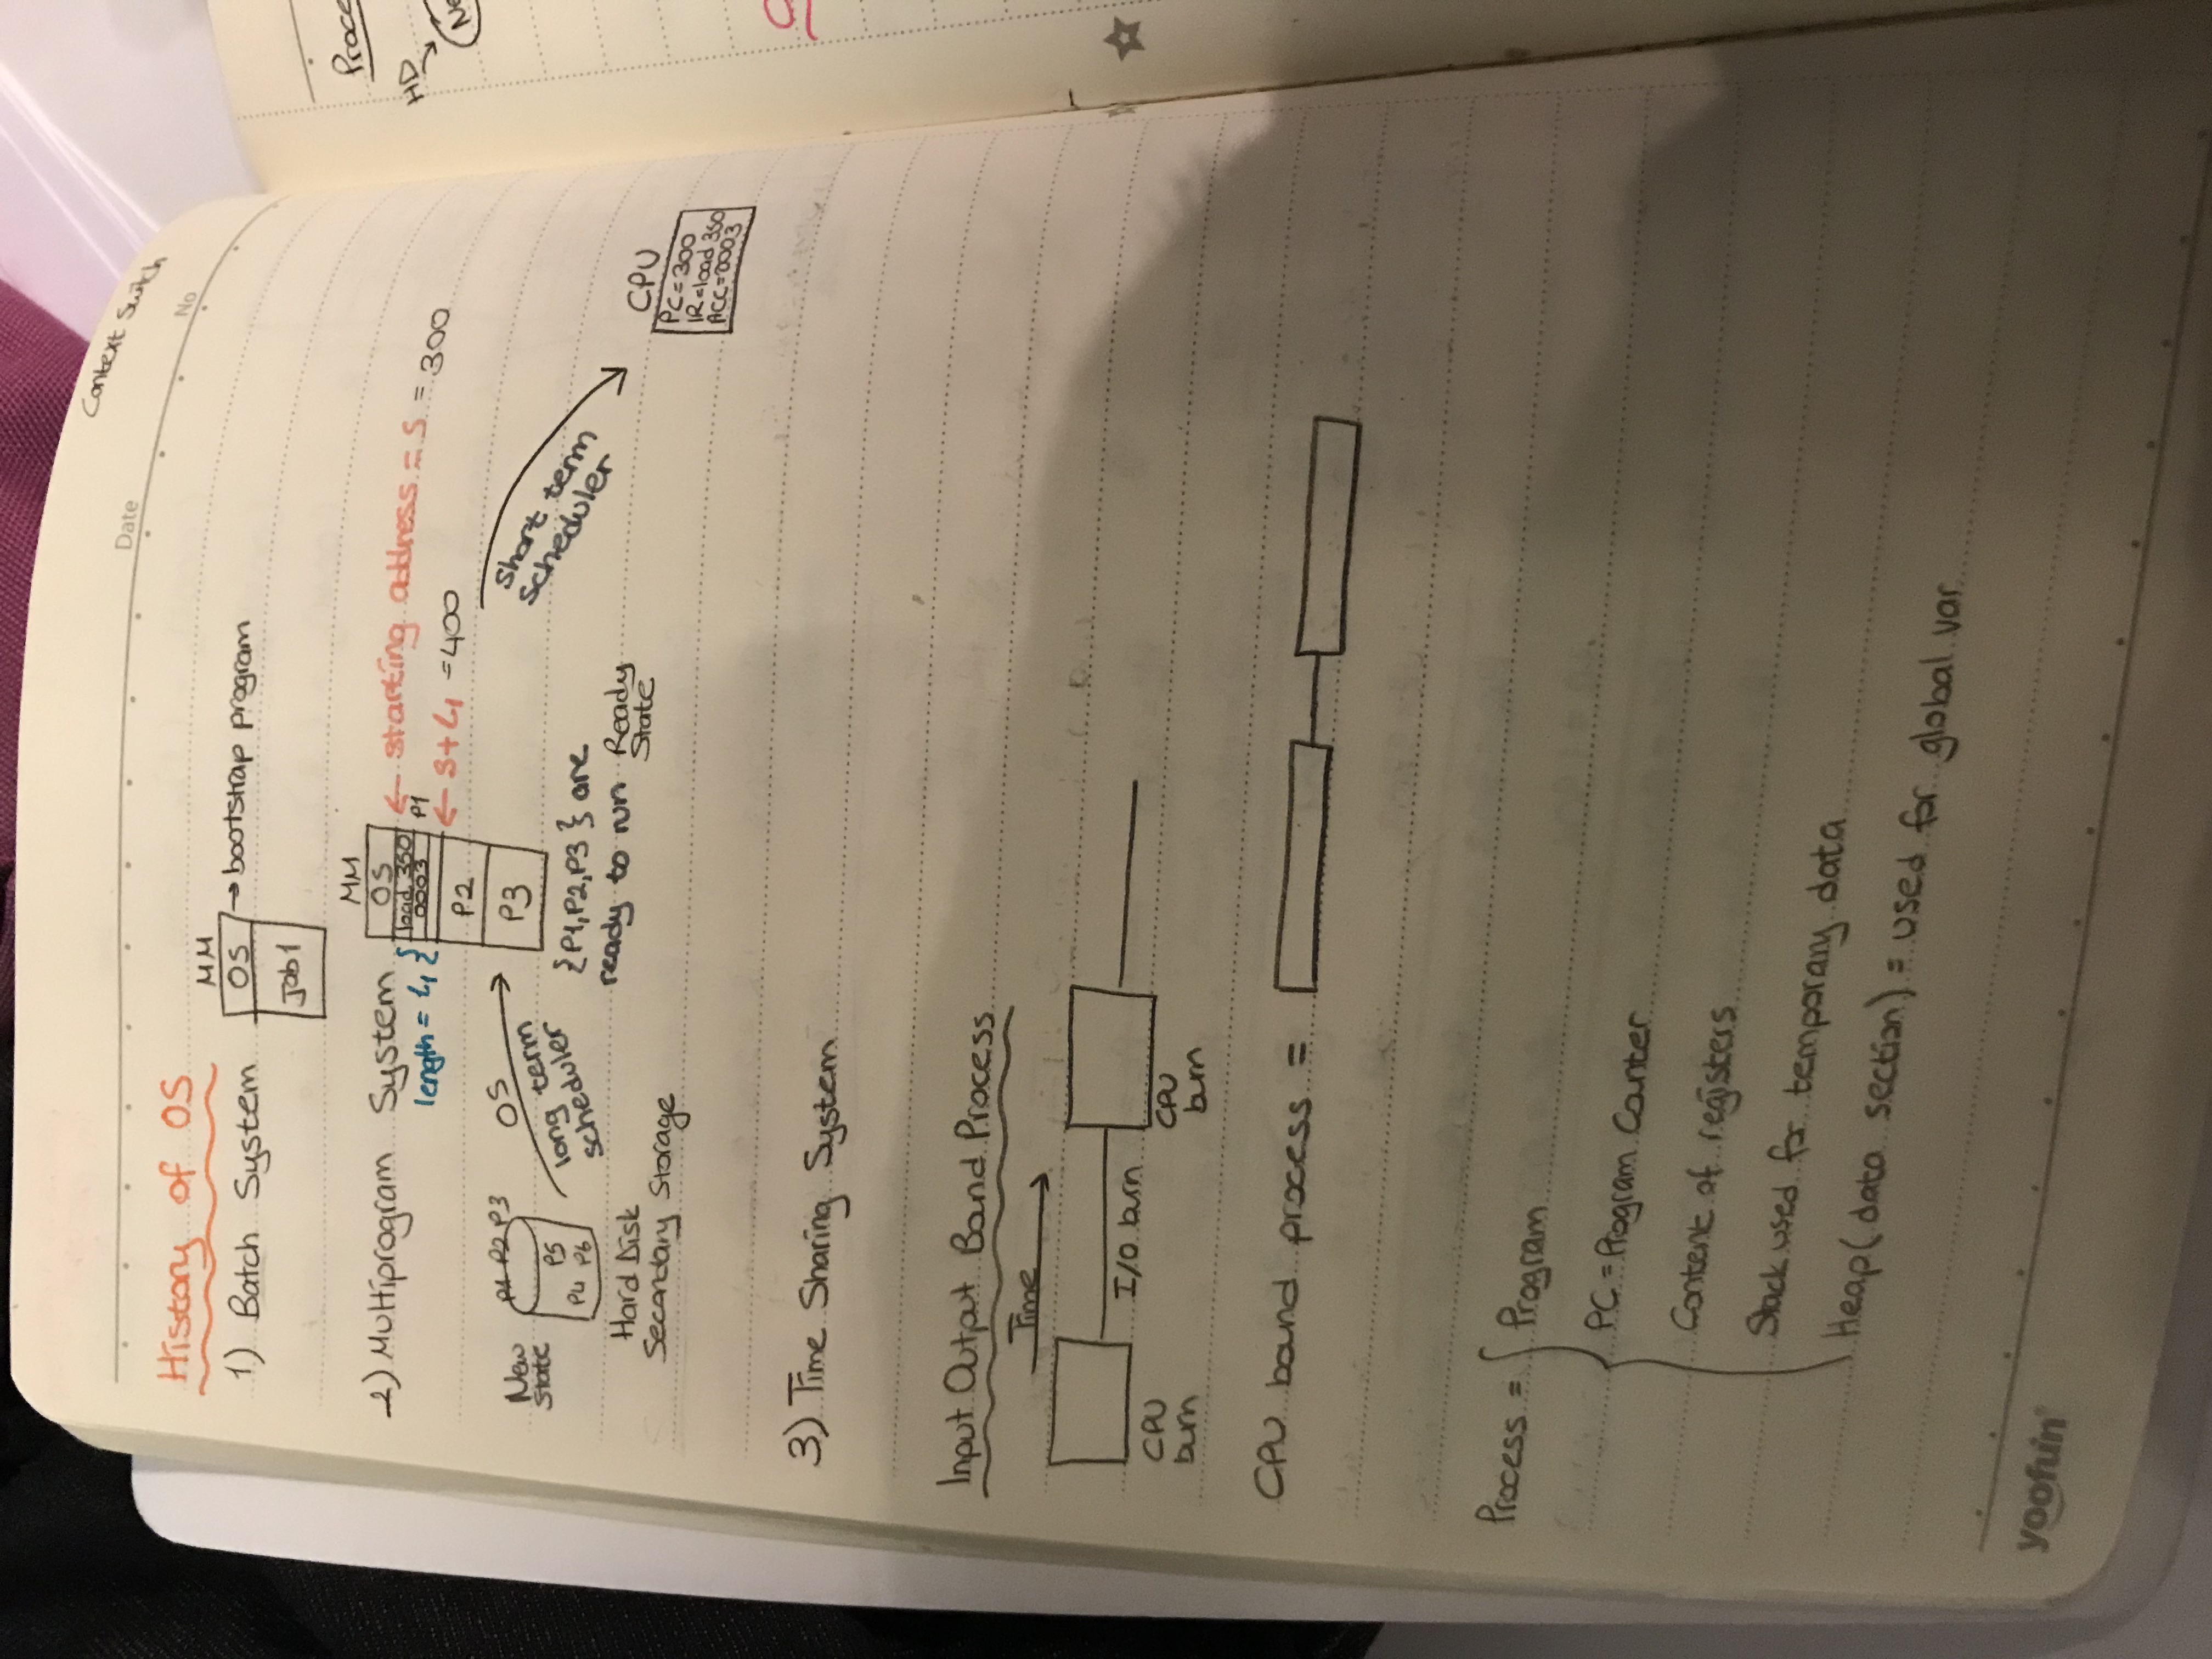 Context Switch
Date
No
History of OS
1) Batch System
MM
OS → bootstrap program
Job1
2) Multiprogram System
MM
OS
load 350
0003
P1
P2
P3
← starting address = S = 300
length = L1 {
← S+L1 = 400
New State
P1 P2 P3
P5
P4 P6
Hard Disk
Secondary Storage
OS
long term
scheduler
{P1,P2,P3} are
ready to run Ready
State
Short term
scheduler
CPU
PC=300
IR=load 350
ACC=0003
3) Time Sharing System
Input Output Band Process
Time
I/O burn
CPU
burn
CPU
burn
CPU bound process =
Process = { Program
PC = Program Counter
Content of registers
Stack used for temporary data
Heap( data section) = used for global var
yoofun
Proce
HD
Ne